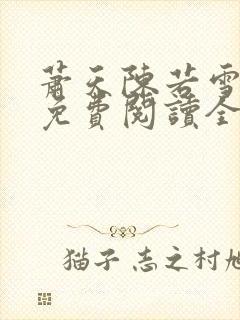 蕭天陳若雪
免費閱讀全
猫子 志之村旭